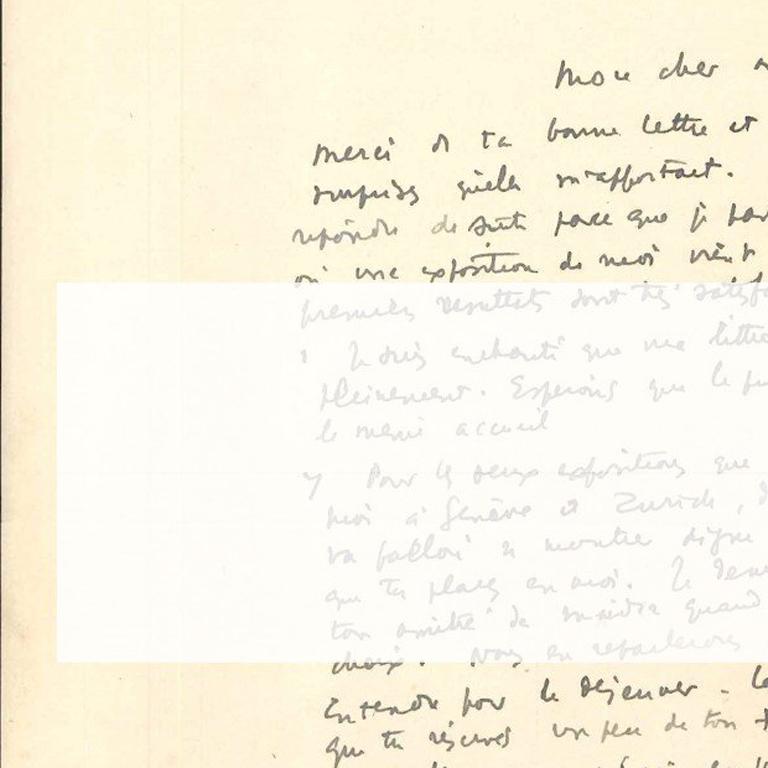 Mon cher
merci de ta bonne lettre et
surprises qu'elle m'apportait.
répondre de suite parce que je
où une exposition de moi vient
premiers résultats sont très
1 Je suis enchanté que ma
pleinement. Espérons que le
le même accueil
Pour les deux expositions que
moi à Genève et Zurich,
va falloir se montrer digne
que tu places en moi. Je
ton amitié de quand
choix. Nous en reparlerons
Entendu pour le déjeuner -
que tu réserves un peu de ton